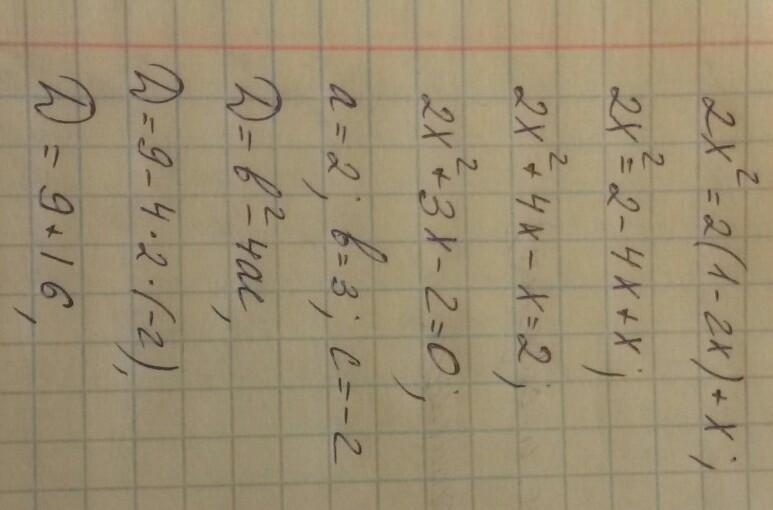 2x² = 2(1 - 2x) + x;
2x² = 2 - 4x + x;
2x² + 4x - x = 2;
2x² + 3x - 2 = 0;
a = 2; b = 3; c = -2
D = b² - 4ac,
D = 9 - 4·2·(-2),
D = 9 + 16,